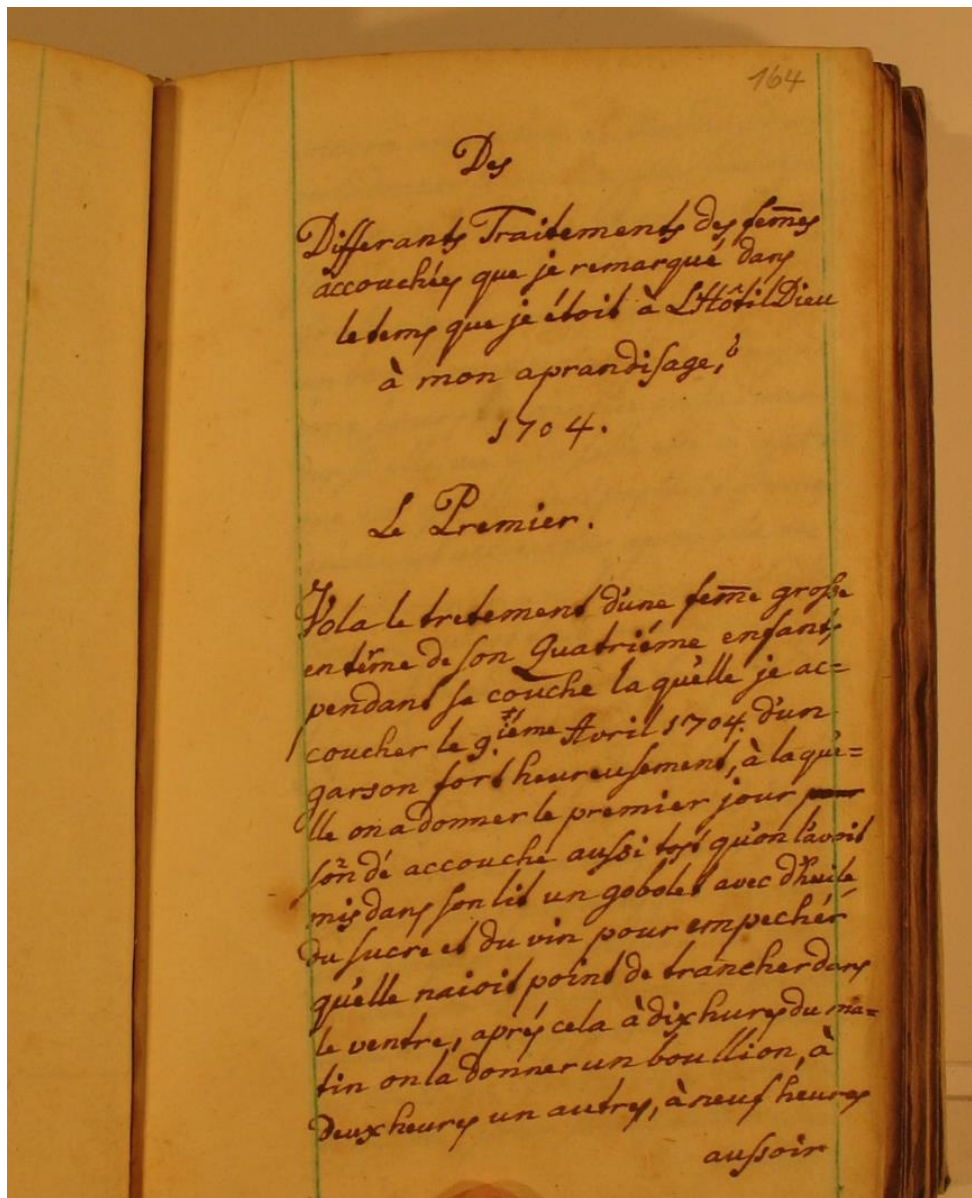 164
Des
Differants Traitements des fem̄es
accouchées que je remarqué dans
le tems que je étoit à L'Hôtil Dieu
à mon aprandisage,
1704.
Le Premier.
Vola le tretement d'une fem̄e grosse
en térme de son Quatriéme enfants
pendant sa couche la quélle je ac=
coucher le 9.iéme Avril 1704. d'un
garson fort heureusement, à laqué=
lle on a donner le premier jour
dé accouche aussi tost qu'on l'avoit
mis dans son lit un gobolet avec d'huile
du sucre et du vin pour empechér
qu'elle naioit point de trancher dans
le ventre, aprés cela à dix hures du ma=
tin on la donner un boullion, à
deux heures un autres, à neuf heures
aussoir